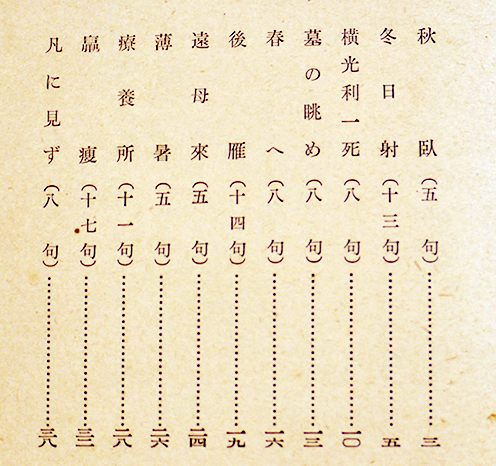 秋臥(五句)……………………三
冬日射(十三句)……………………五
横光利一死(八句)……………………一〇
墓の眺め(八句)……………………一三
春へ(八句)……………………一六
後雁(十四句)……………………一九
遠母來(五句)……………………二四
薄暑(五句)……………………二六
療養所(十一句)……………………二八
羸瘦(十七句)……………………三二
凡に見ず(八句)……………………三八